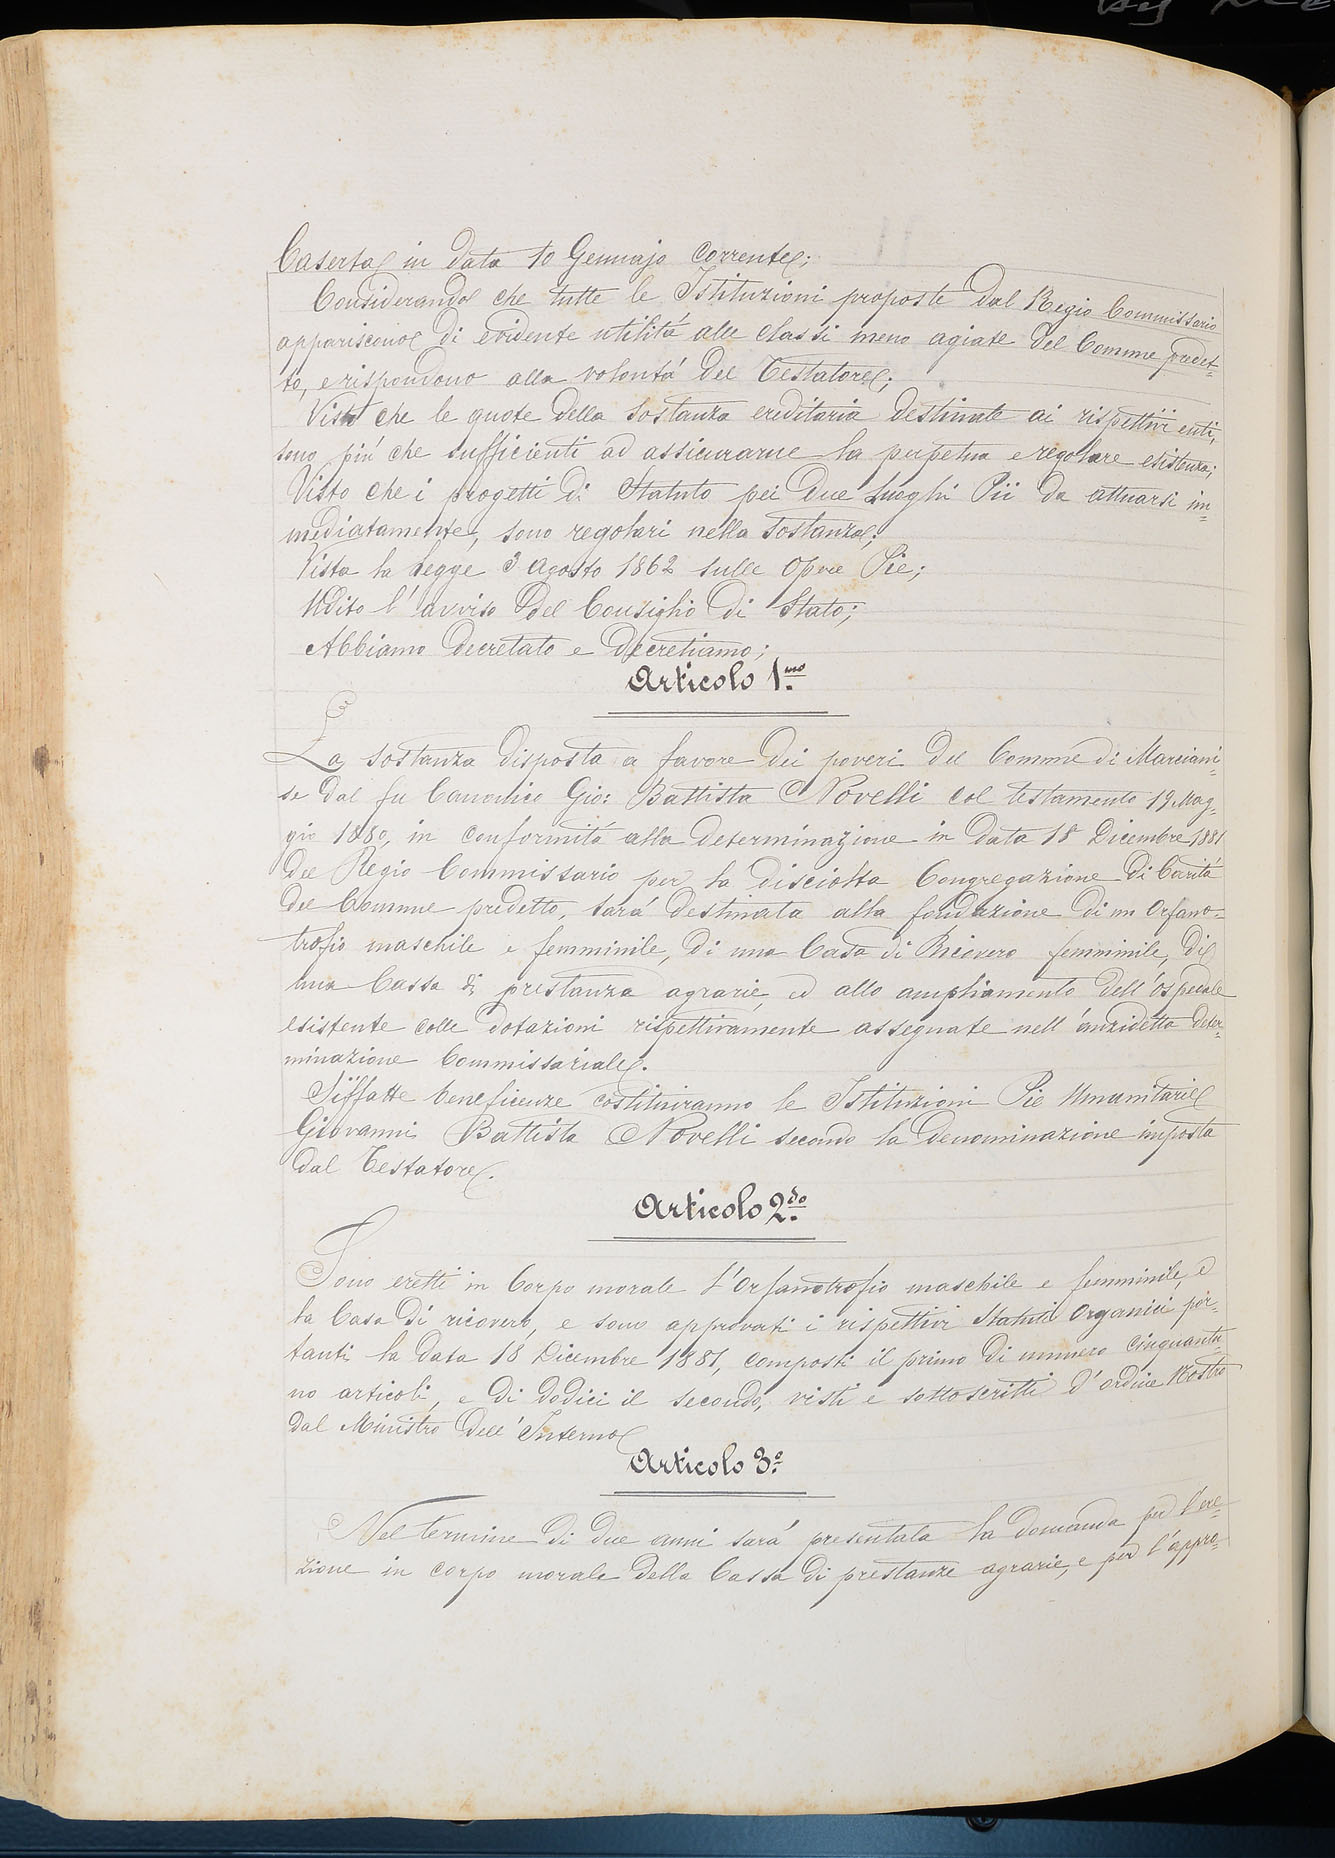 Caserta in data 10 Gennajo corrente;
Considerando che tutte le Istituzioni proposte dal Regio Commissario
appariscono di evidente utilità alle classi meno agiate del Comune predet-
to, e rispondono alla volontà del Testatore;
Visto che le quote della sostanza ereditaria destinate ai rispettivi enti,
sono più che sufficienti ad assicurarne la perpetua e regolare esistenza;
Visto che i progetti di Statuto pei due Luoghi Pii da attuarsi im-
mediatamente, sono regolari nella sostanza;
Vista la Legge 3 Agosto 1862 sulle Opere Pie;
Udito l'avviso del Consiglio di Stato;
Abbiamo decretato e decretiamo;
Articolo 1.mo
La sostanza disposta a favore dei poveri del Comune di Marciani-
se dal fu Canonico Gio: Battista Novelli col testamento 19 Mag-
gio 1880, in conformità alla determinazione in data 18 Dicembre 1881
del Regio Commissario per la disciolta Congregazione di Carità
del Comune predetto, sarà destinata alla fondazione di un Orfano-
trofio maschile e femminile, di una Casa di Ricovero femminile, di
una Cassa di prestanza agrarie, ed allo ampliamento dell'ospedale
esistente colle dotazioni rispettivamente assegnate nell'anzidetta deter-
minazione Commissariale.
Siffatte beneficenze costituiranno le Istituzioni Pie Umanitarie
Giovanni Battista Novelli secondo la denominazione imposta
dal Testatore.
Articolo 2.do
Sono eretti in Corpo morale l'Orfanotrofio maschile e femminile, e
la Casa di ricovero, e sono approvati i rispettivi Statuti Organici por-
tanti la data 18 Dicembre 1881, composti il primo di numero cinquantu-
no articoli, e di dodici il secondo, visti e sottoscritti d'ordine Nostro
dal Ministro dell'Interno
Articolo 3.o
Nel termine di due anni sarà presentata la domanda per l'ere-
zione in corpo morale della Cassa di prestanze agrarie, e per l'appro-